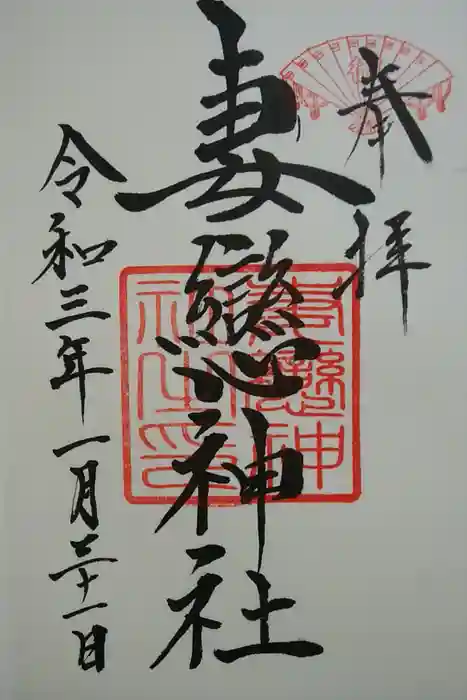 奉拝
妻戀神社
妻戀神
社之印
令和三年一月三十一日